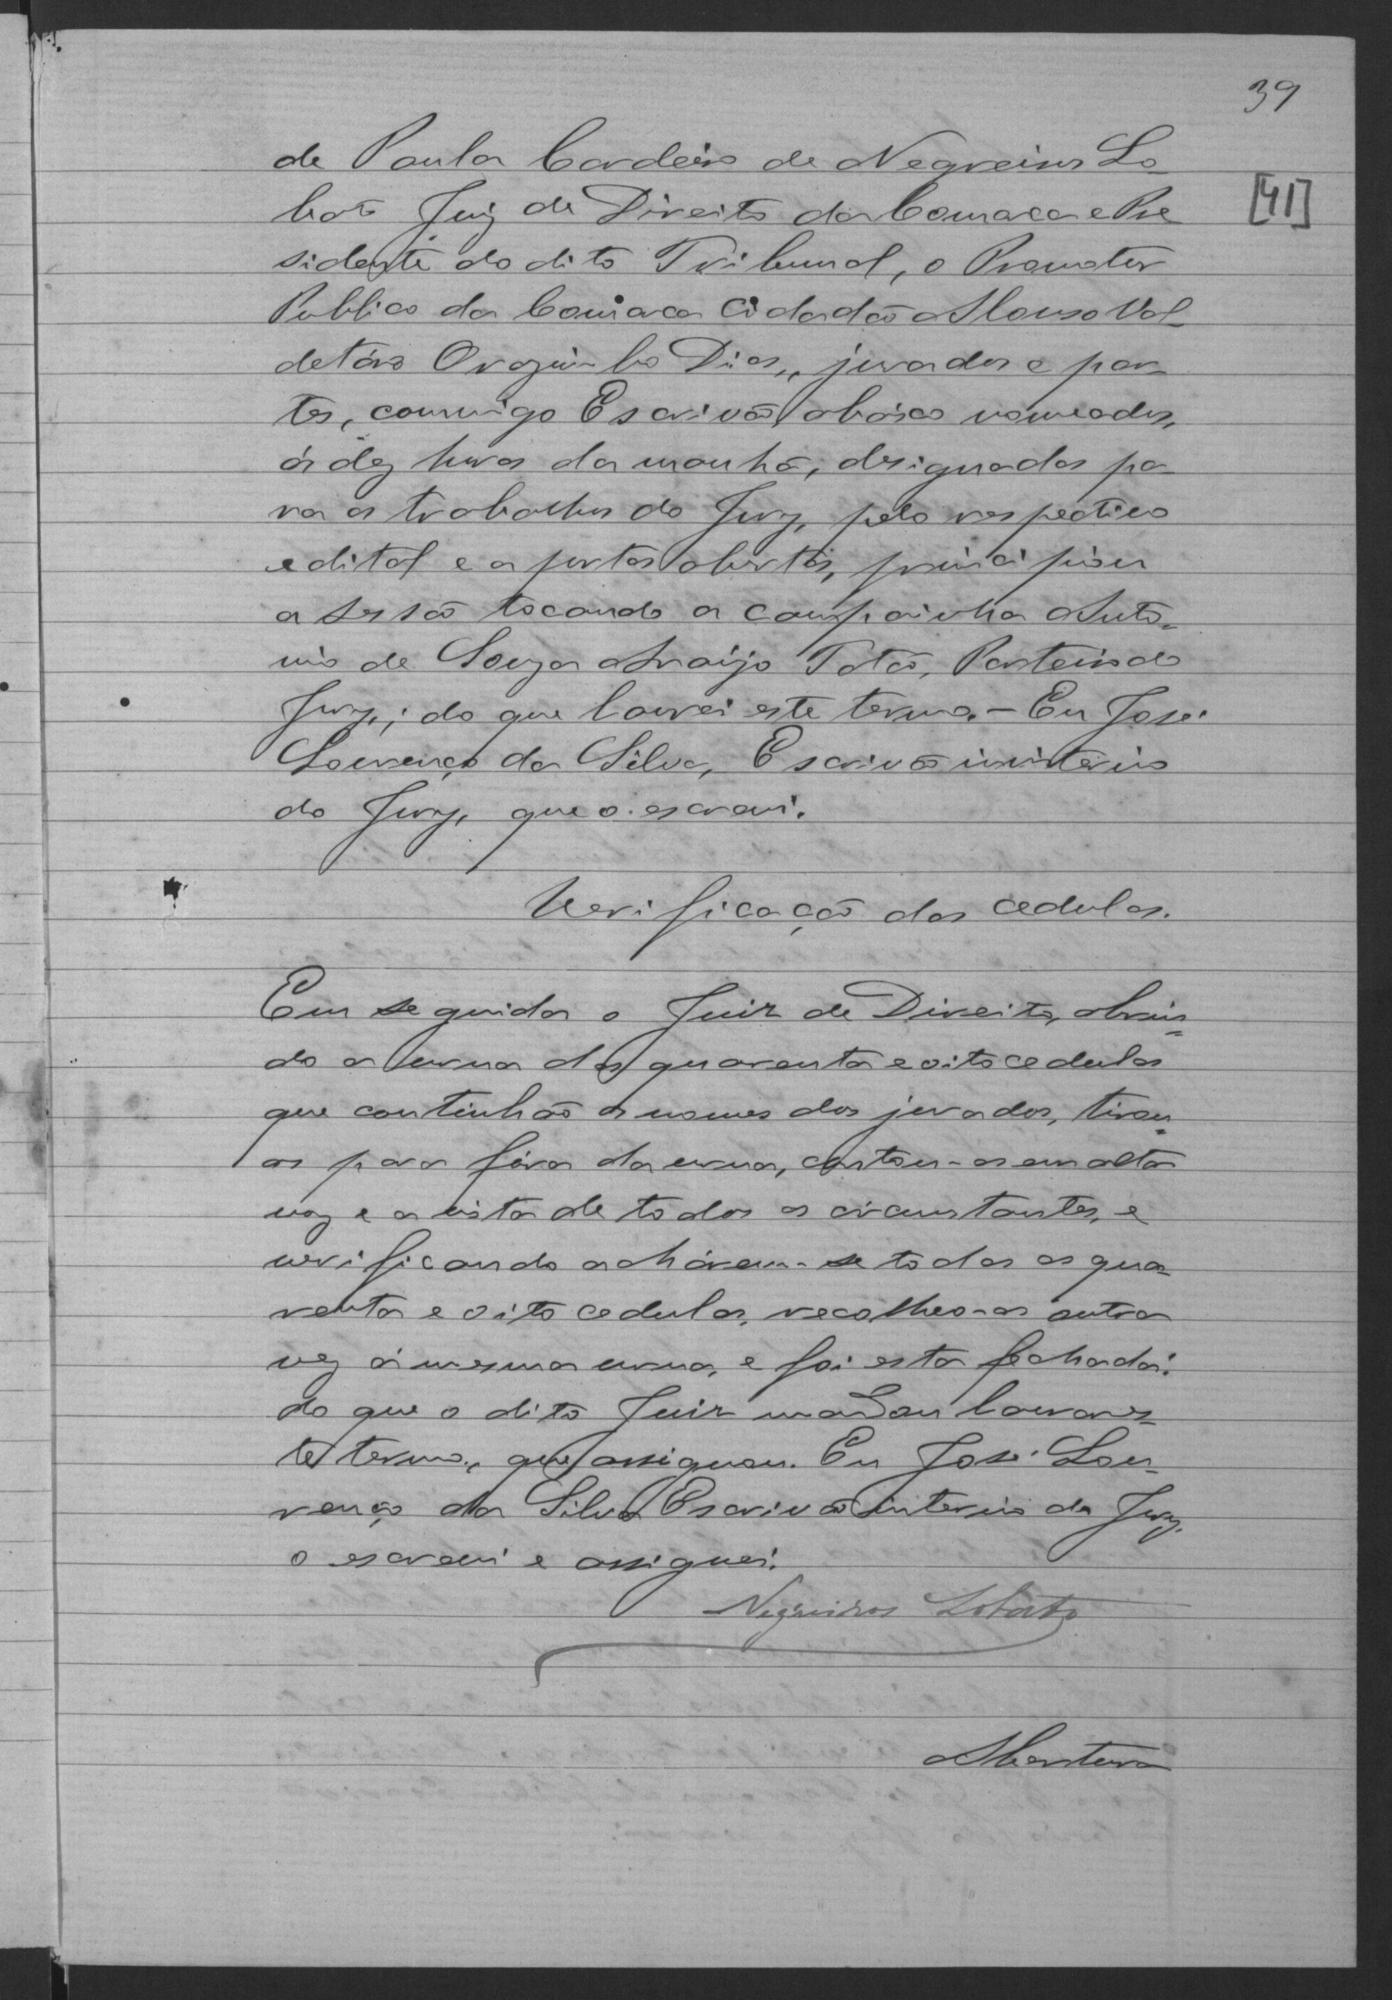 39
[41]
de Paula Cordeiro de Negreiros Lo-
bato Juiz de Direito da Comarca e Pre
sidente do dito Tribunal, o Promotor
Publico da Comarca Cidadão Afonso Val-
detáro Orozimbo Dias, jurados e par-
tes, commigo Escrivão abáixo nomeados,
ás dez horas da manhã, designadas pa-
ra os trabalhos do Jury, pelo respectivo
edital e a portas abertas, principiou
a sessão tocando a campainha Anto-
nio de Souza Araújo Totó, Porteiro do
Jury; do que lavrei este termo. - Eu José
Lourenço da Silva, Escrivão interino
do Jury, que o escrevi.
Verificação das cedulas.
Em seguida o Juiz de Direito, abrin-
do a urna das quarenta e oito cedulas
que continhão os nomes dos jurados, tirou-
as para fóra da urna, contou-as em alta
voz e a vista de todos os circunstantes, e
verificando achárem-se todas as qua-
renta e oito cedulas, recolheo-as outra
vez á mesma urna, e foi esta fechada:
do que o dito Juiz mandou lavrar es-
te termo, que assignou. Eu José Lou-
renço da Silva Escrivão interino do Jury,
o escrevi e assignei.
Negreiros Lobato
Abertura